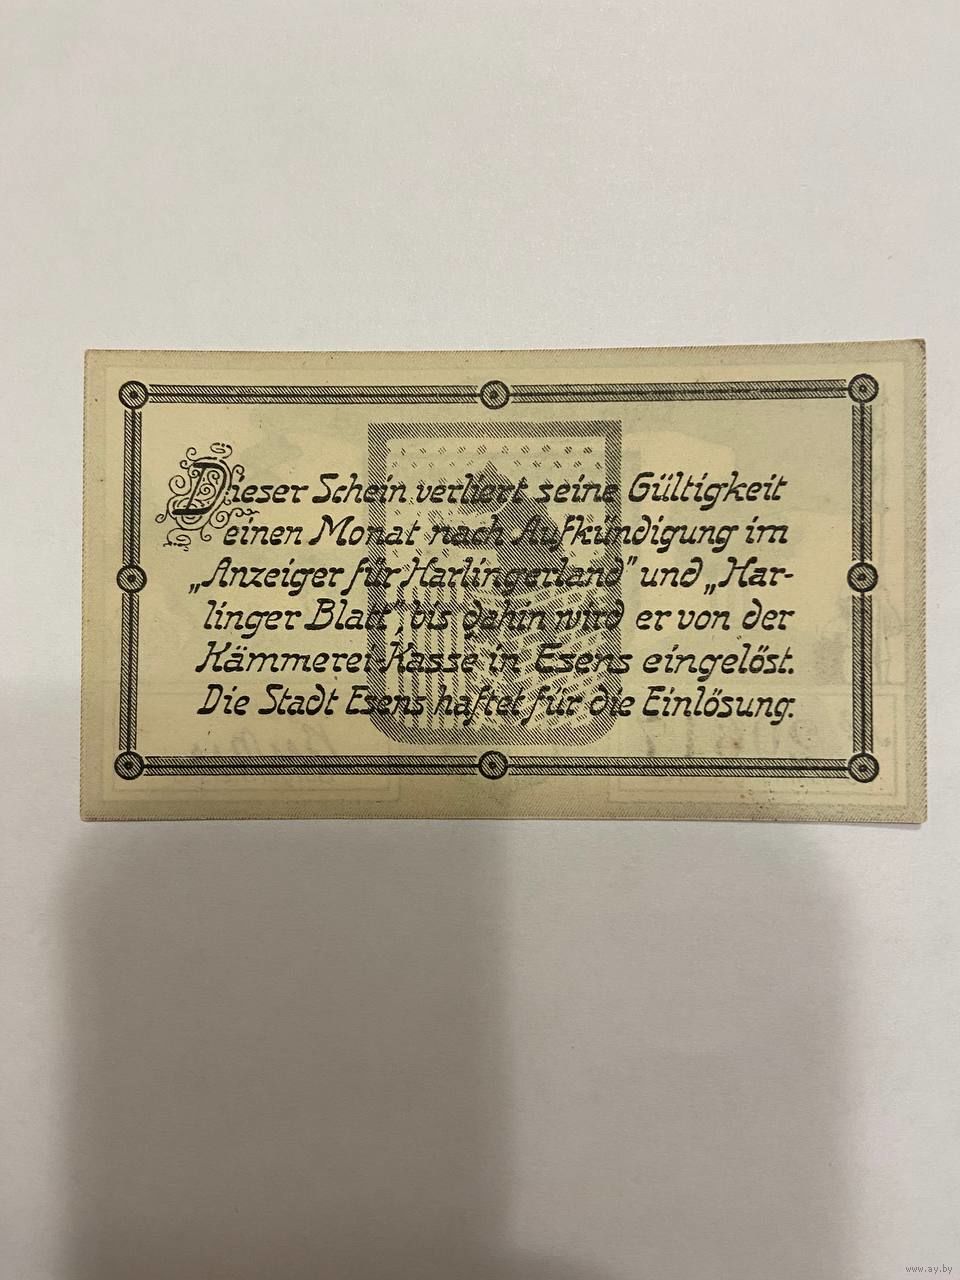 Dieser Schein verliert seine Gültigkeit
einen Monat nach Aufkündigung im
„Anzeiger für Harlingerland" und „Har-
linger Blatt", bis dahin wird er von der
Kämmerei-Kasse in Esens eingelöst.
Die Stadt Esens haftet für die Einlösung.
www.ay.by